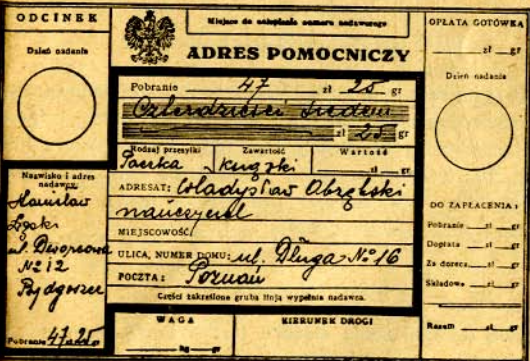 ODCINEK
Dzień nadania
Nazwisko i adres
nadawcy:
Stanisław
Zęski
ul. Dworcowa
№ 12
Bydgoszcz
Pobranie 47 zł 25 gr
Miejsce do nalepienia numeru nadawczego
ADRES POMOCNICZY
Pobranie 47 zł 25 gr
Czterdzieści siedem
zł 25 gr
Rodzaj przesyłki Zawartość Wartość
Paczka książki zł gr
ADRESAT: Władysław Obrębski
nauczyciel
MIEJSCOWOŚĆ
ULICA, NUMER DOMU: ul. Długa № 16
POCZTA: Poznań
Części zakreślone grubą linją wypełnia nadawca.
WAGA KIERUNEK DROGI
kg gr
OPŁATA GOTÓWKĄ
zł gr
Dzień nadania
DO ZAPŁACENIA:
Pobranie zł gr
Dopłata zł gr
Za doręcz. zł gr
Składowe zł gr
Razem zł gr